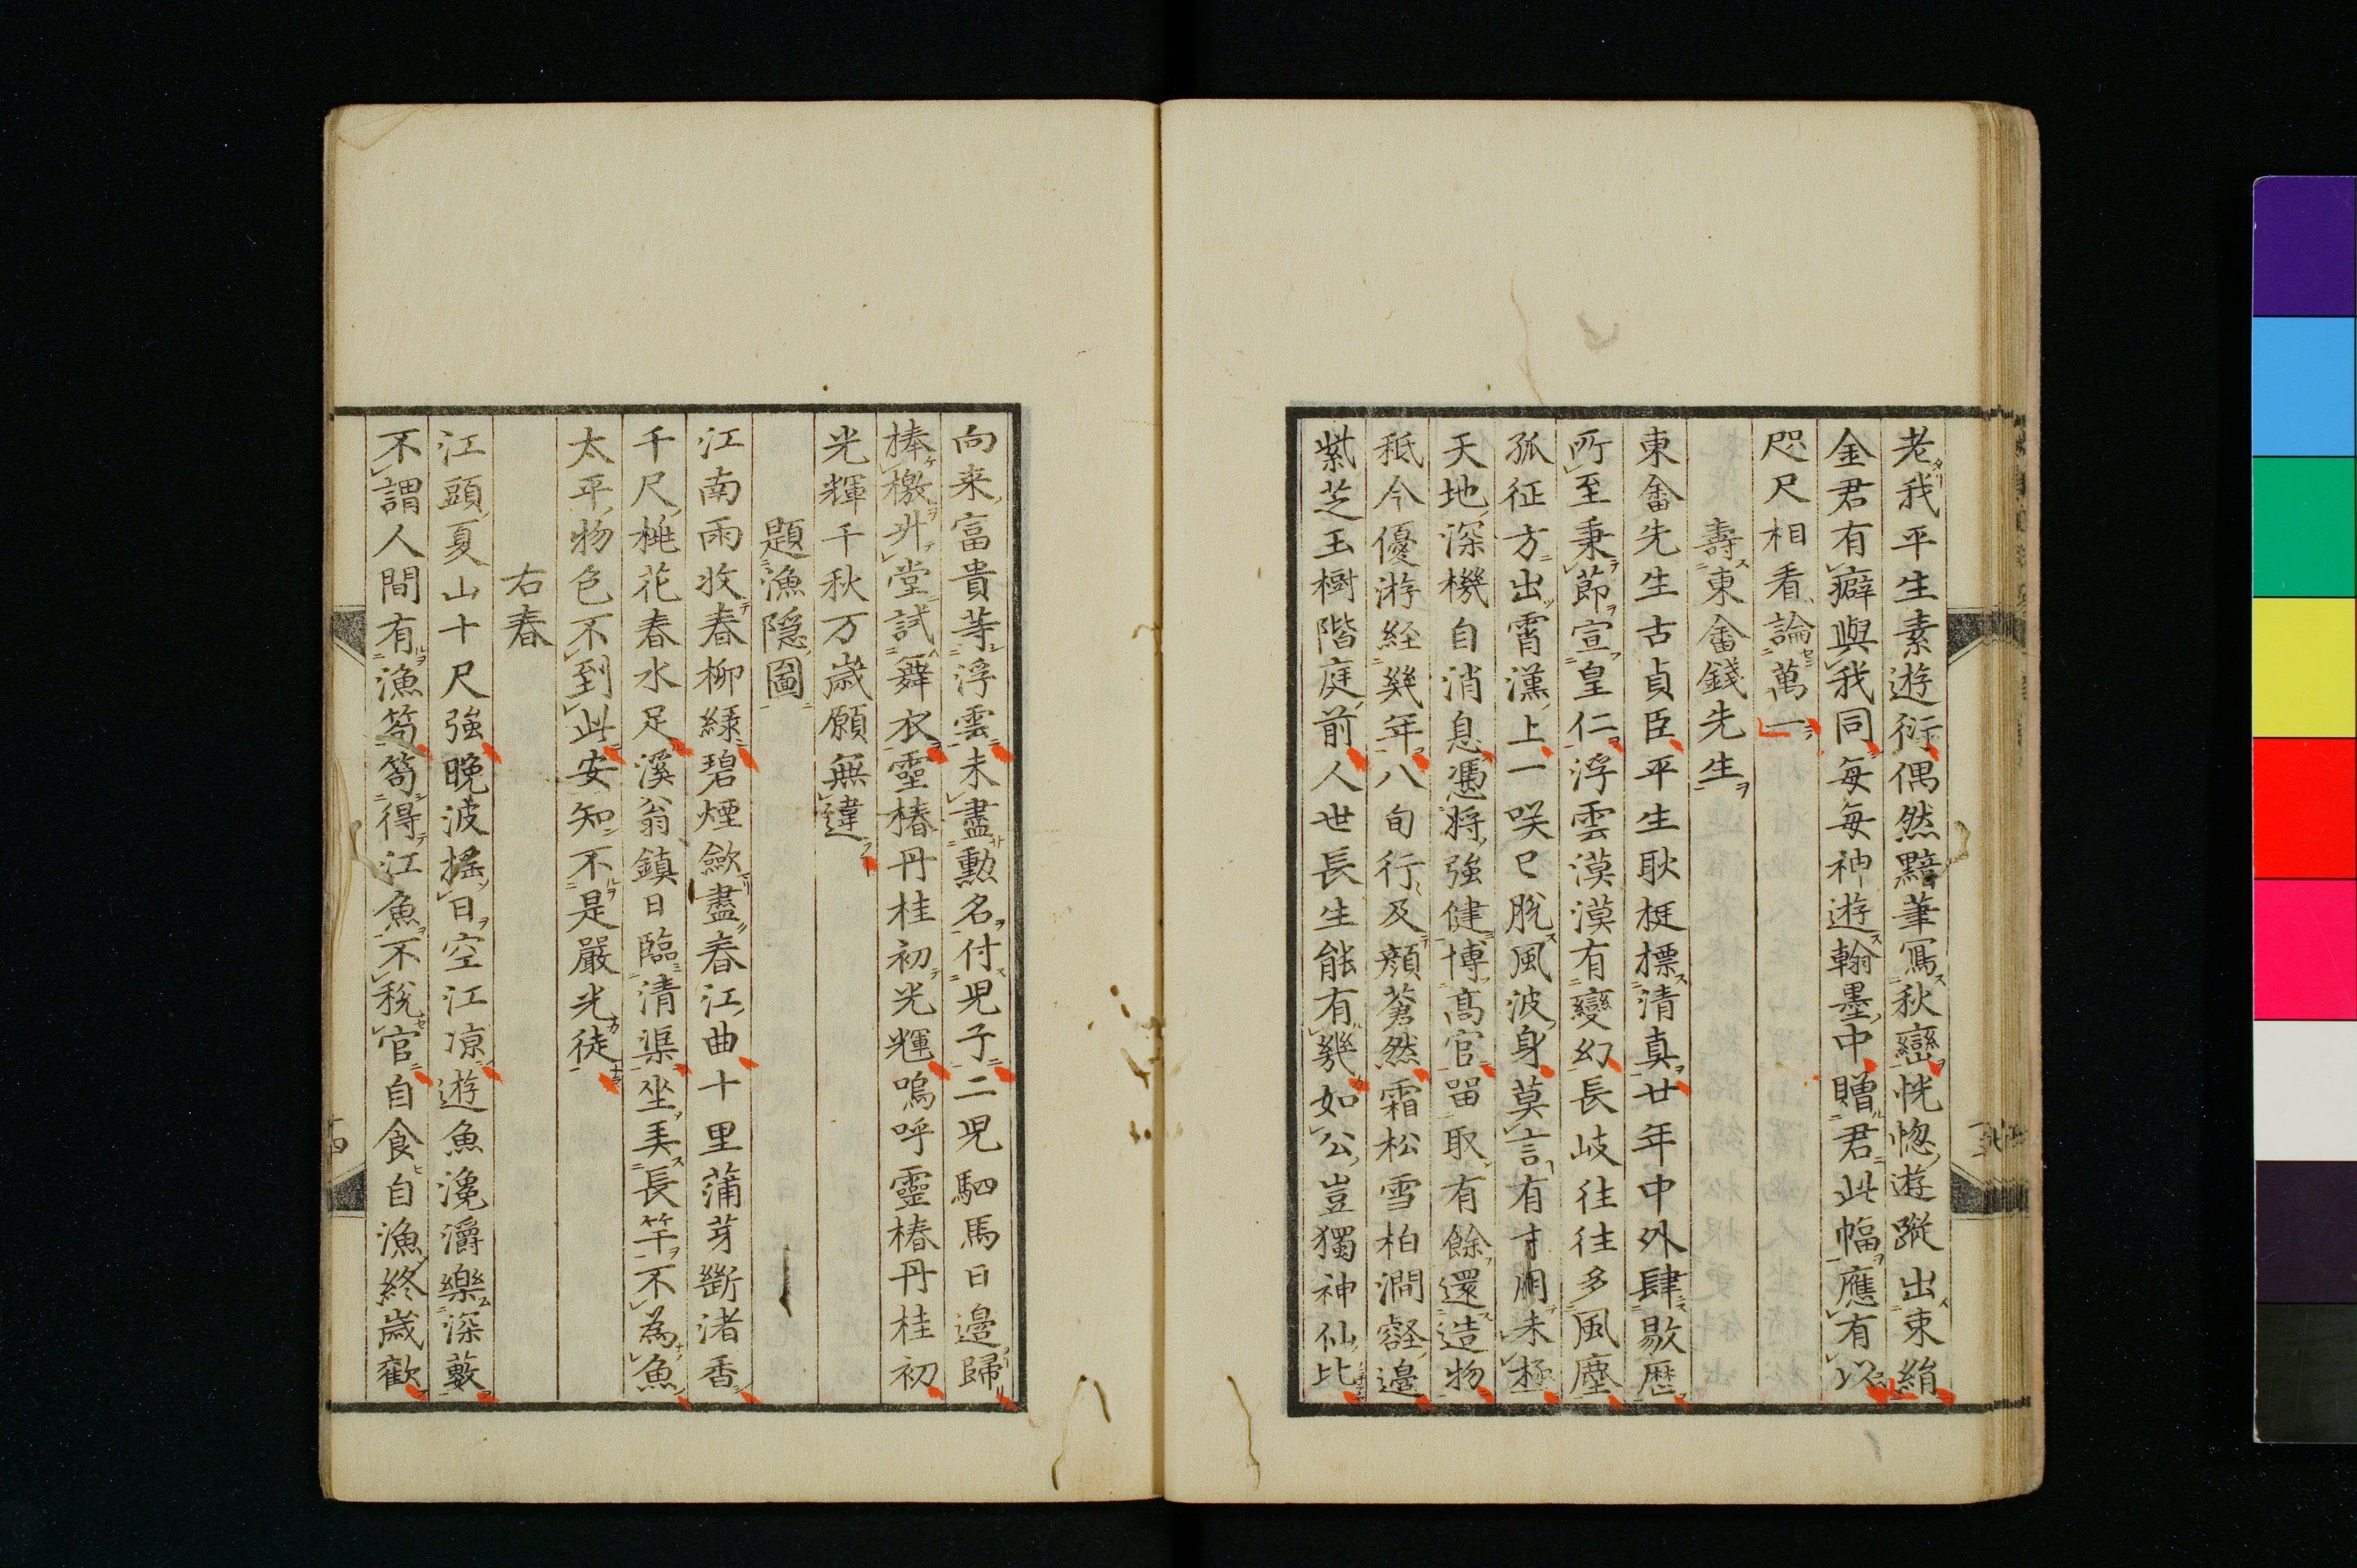 老我平生素遊衍偶然黯筆寫秋巒恍惚遊蹤出東絹
金君有癖與我同每每神遊翰墨中贈君此幅應有以
咫尺相看論萬一
壽東畬錢先生
東畬先生古貞臣平生耿挺標清真廿年中外肆敭歷
所至秉節宣皇仁浮雲漠漠有變幻長岐往往多風塵
孤征方出霄漢上一咲已脫風波身莫言有才用未極
天地深機自消息憑將強健博髙官畱取有餘還造物
秪今優游経幾年八旬行及顔蒼然霜松雪柏澗壑邊
紫芝玉樹階庭前人世長生能有幾如公豈獨神仙比
向来富貴等浮雲未盡勲名付児子二児駟馬日邊歸
捧檄升堂試舞衣靈椿丹桂初光輝嗚呼靈椿丹桂初
光輝千秋万歳願無違
題漁隠圖
江南雨收春柳綠碧煙歛盡春江曲十里蒲芽斷渚香
千尺桃花春水足溪翁鎮日臨清渠坐弄長竿不為魚
太平物色不到此安知不是嚴光徒
右春
江頭夏山十尺強晚波揺日空江凉遊魚瀺灂樂深藪
不謂人間有漁笱笱得江魚不稅官自食自漁終歳歡